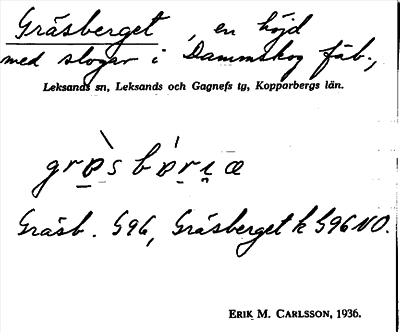 Gräsberget, en höjd
med slogar i Dammskog fäb.,
Leksands sn, Leksands och Gagnefs tg, Kopparbergs län.
Gräsb. S96, Gräsberget k S96 NO.
ERIK M. CARLSSON, 1936.